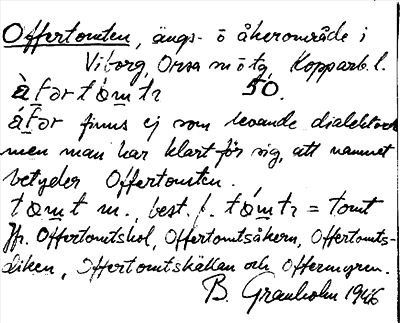 Offertomten, ängs- o åkerområde i
Viborg, Orsa sn o tg, Kopparb. l.
àfər tò̱mtɪ 50.
áfər finns ej som levande dialektord
men man har klart för sig, att namnet
betyder Offertomten.
tò̱mt m., best. f. tò̱mtɪ = tomt
Jfr. Offertomtshol, Offertomtsåkern, Offertomts-
diken, Offertomtskällan och Offermyren.
B. Granholm 1946